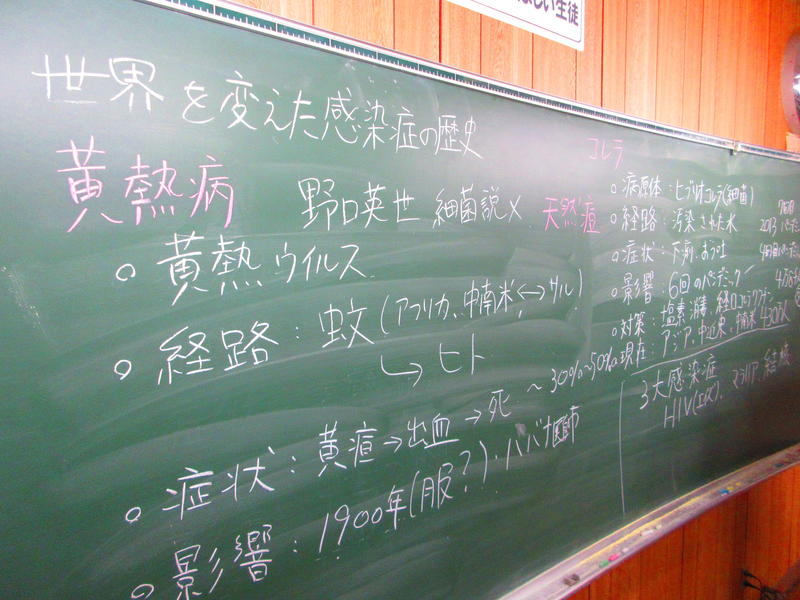 しい生徒
世界を変えた感染症の歴史
黄熱病 野口英世 細菌説× 天然痘
○黄熱ウイルス
○経路:蚊(アフリカ、中南米↔サル)
↳ヒト
○症状:黄疸→出血→死 ~30%~50%
○影響:1900年(服?)・ハバナ医師
コレラ
○病原体:ビブリオコレラ(細菌)
○経路:汚染された水
○症状:下痢、おう吐
○影響:6回のパンデミック
○対策:塩素消毒、経口コレラワクチン
現在:アジア、中近東、中南米 430万人
3大感染症
HIV(エイズ)、マラリア 結核
7回目
2013